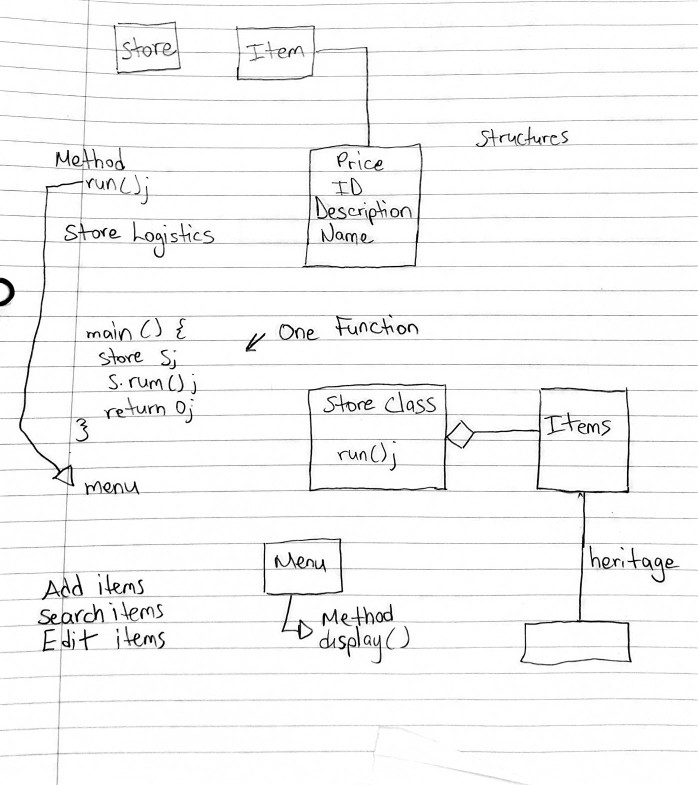 Store
Item
Structures
Price
ID
Description
Name
Method
run();
Store Logistics
main () {
store S;
S.rum();
return 0;
}
One Function
menu
Store Class
run();
Items
heritage
Menu
Method
display()
Add items
Search items
Edit items